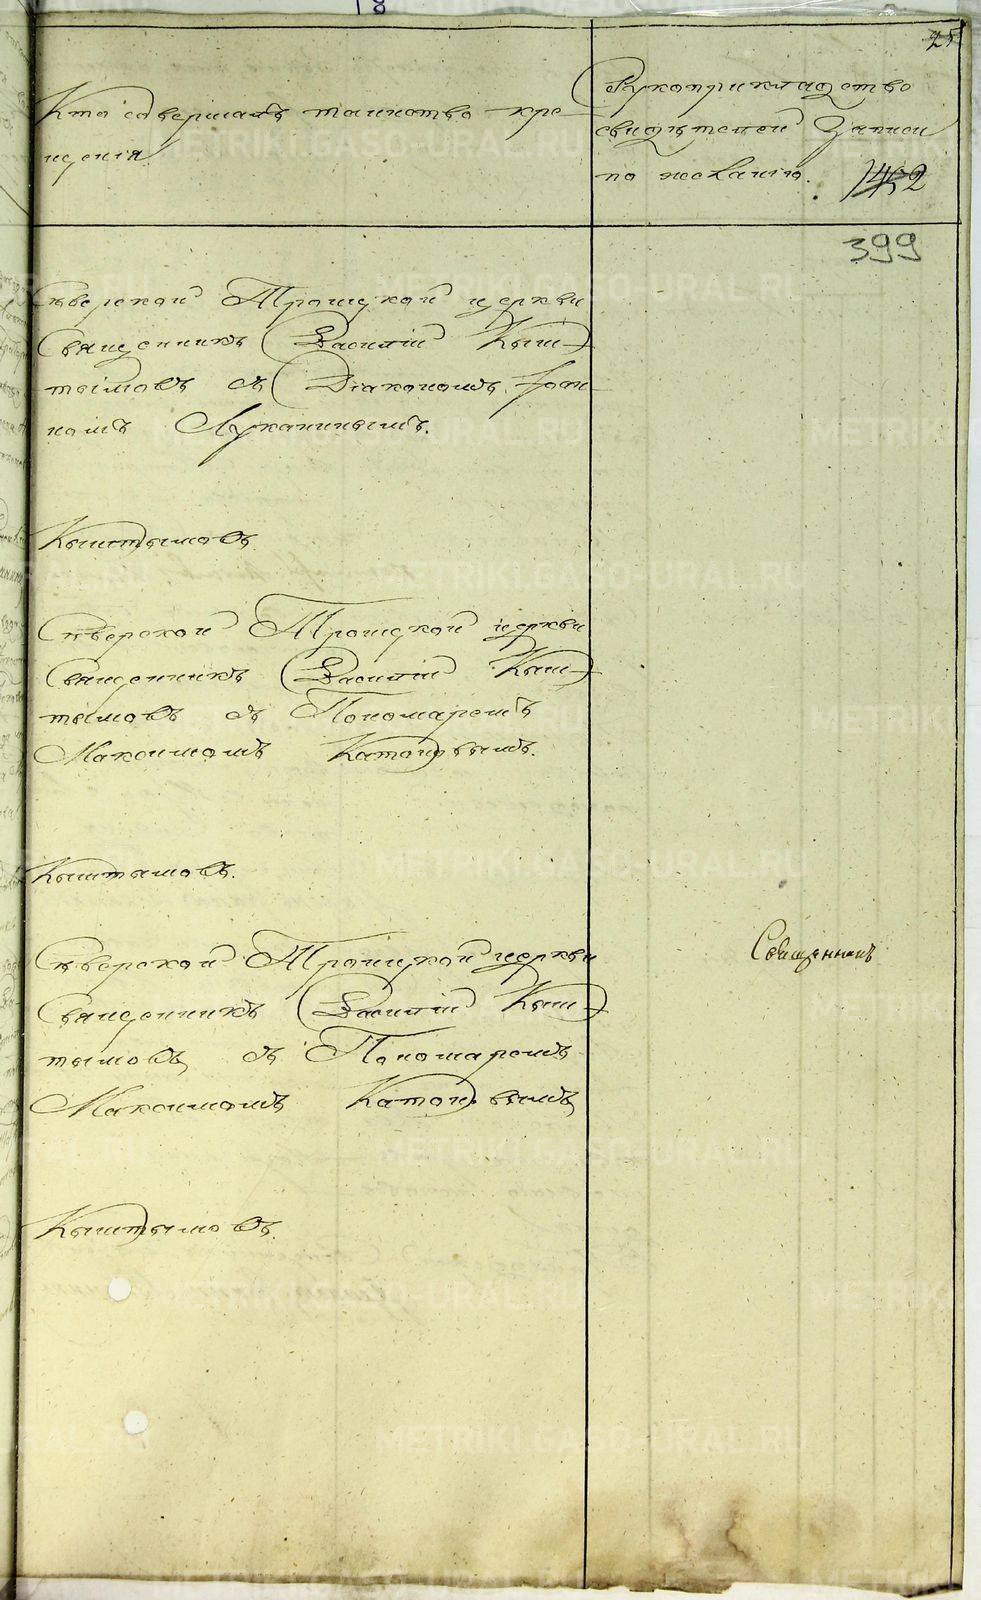 25
Кто совершалъ таинство кре
щенія.
Рукоприкладство
свидѣтелей записи
по желанію.
1432
399
Сѣверской Троицкой церкви
Священникъ Василій Кыш-
тымовъ съ Діакономъ Іоан
номъ Луканинымъ.
Кыштымовъ.
Сѣверской Троицкой церкви
Священникъ Василій Кыш-
тымовъ съ Пономаремъ
Максимомъ
Кыштымовъ.
Сѣверской Троицкой церкви
Священникъ Василій Кыш-
тымовъ съ Пономаремъ
Максимомъ
Священникъ
Кыштымовъ.
METRIKI.GASO-URAL.RU